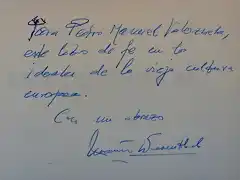 Para Pedro Manuel Valenzuela,
este libro de fe en los
ideales de la vieja cultura
europea.
Con un abrazo